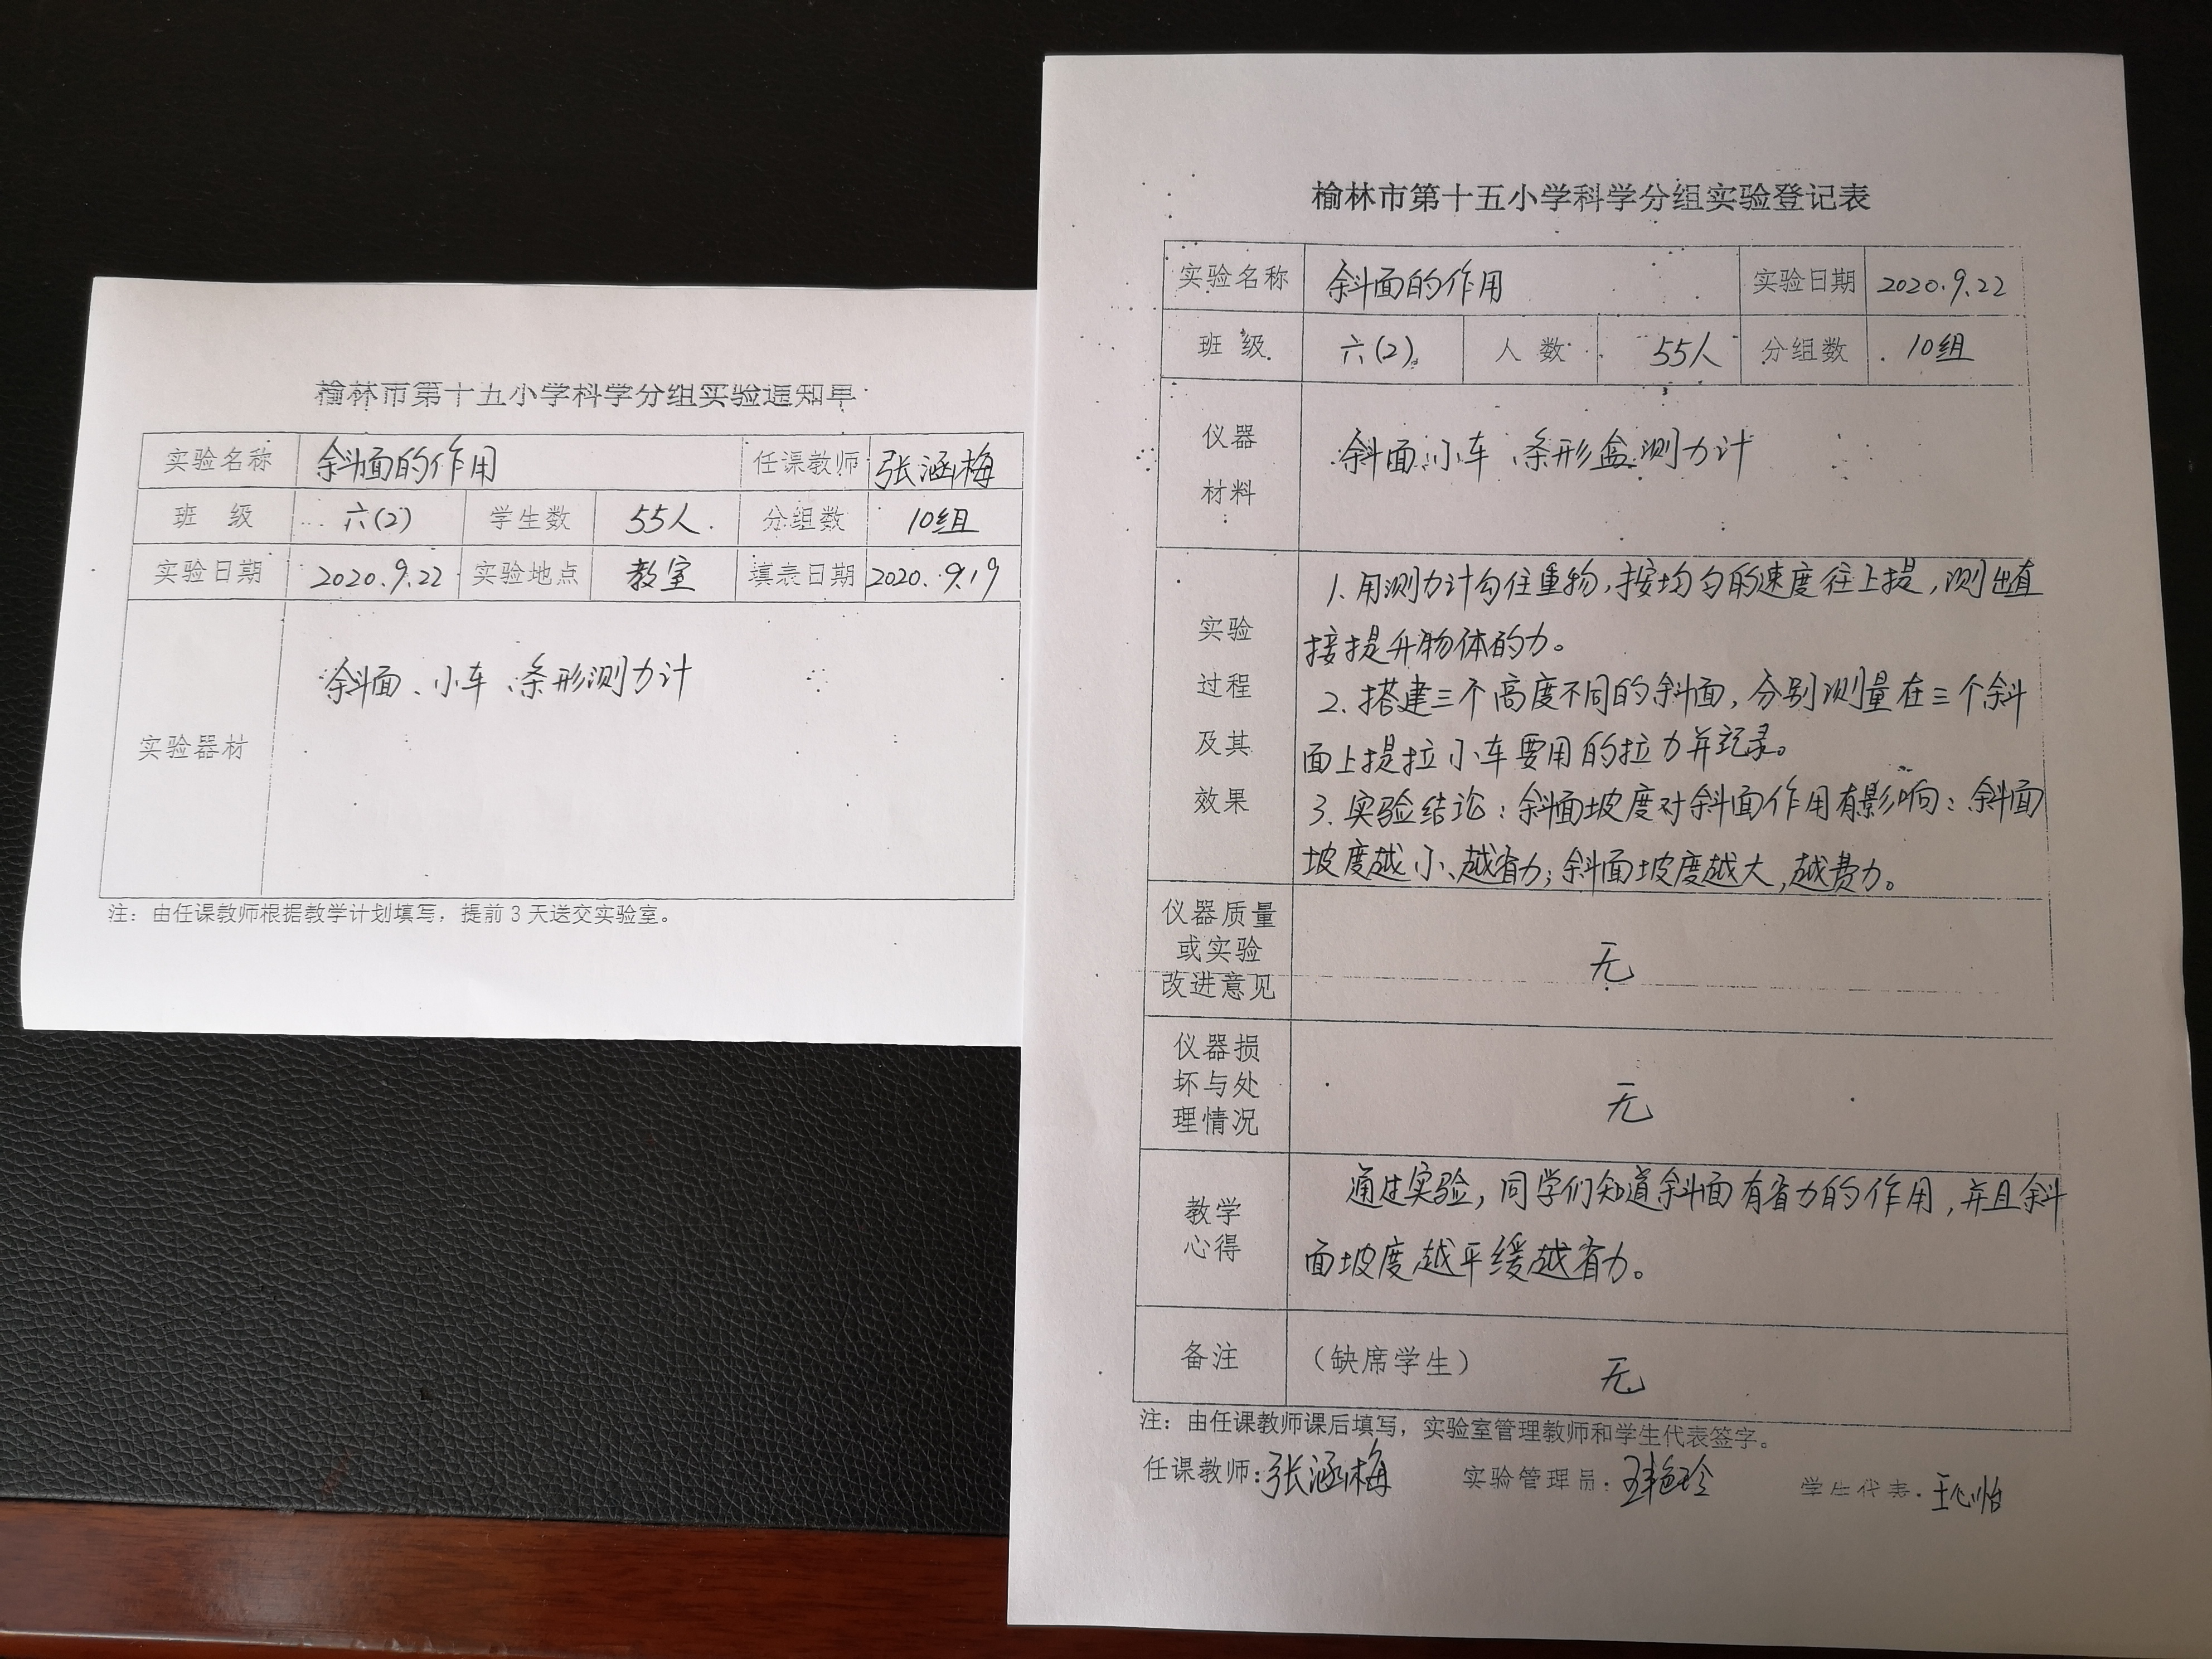 榆林市第十五小学科学分组实验通知单
实验名称 斜面的作用 任课教师 张涵梅
班 级 六(2) 学生数 55人 分组数 10组
实验日期 2020.9.22 实验地点 教室 填表日期 2020.9.19
实验器材 斜面、小车、条形测力计
注：由任课教师根据教学计划填写，提前3天送交实验室。
榆林市第十五小学科学分组实验登记表
实验名称 斜面的作用 实验日期 2020.9.22
班 级 六(2) 人 数 55人 分组数 10组
仪器
材料
斜面、小车、条形盒测力计
实验
过程
及其
效果
1.用测力计勾住重物,按均匀的速度往上提,测出直
接提升物体的力。
2.搭建三个高度不同的斜面,分别测量在三个斜
面上提拉小车要用的拉力并记录。
3.实验结论:斜面坡度对斜面作用有影响:斜面
坡度越小、越省力;斜面坡度越大,越费力。
仪器质量
或实验
改进意见
无
仪器损
坏与处
理情况
无
教学
心得
通过实验,同学们知道斜面有省力的作用,并且斜
面坡度越平缓越省力。
备注 （缺席学生） 无
注：由任课教师课后填写，实验室管理教师和学生代表签字。
任课教师:张涵梅 实验管理员: 学生代表:王心怡